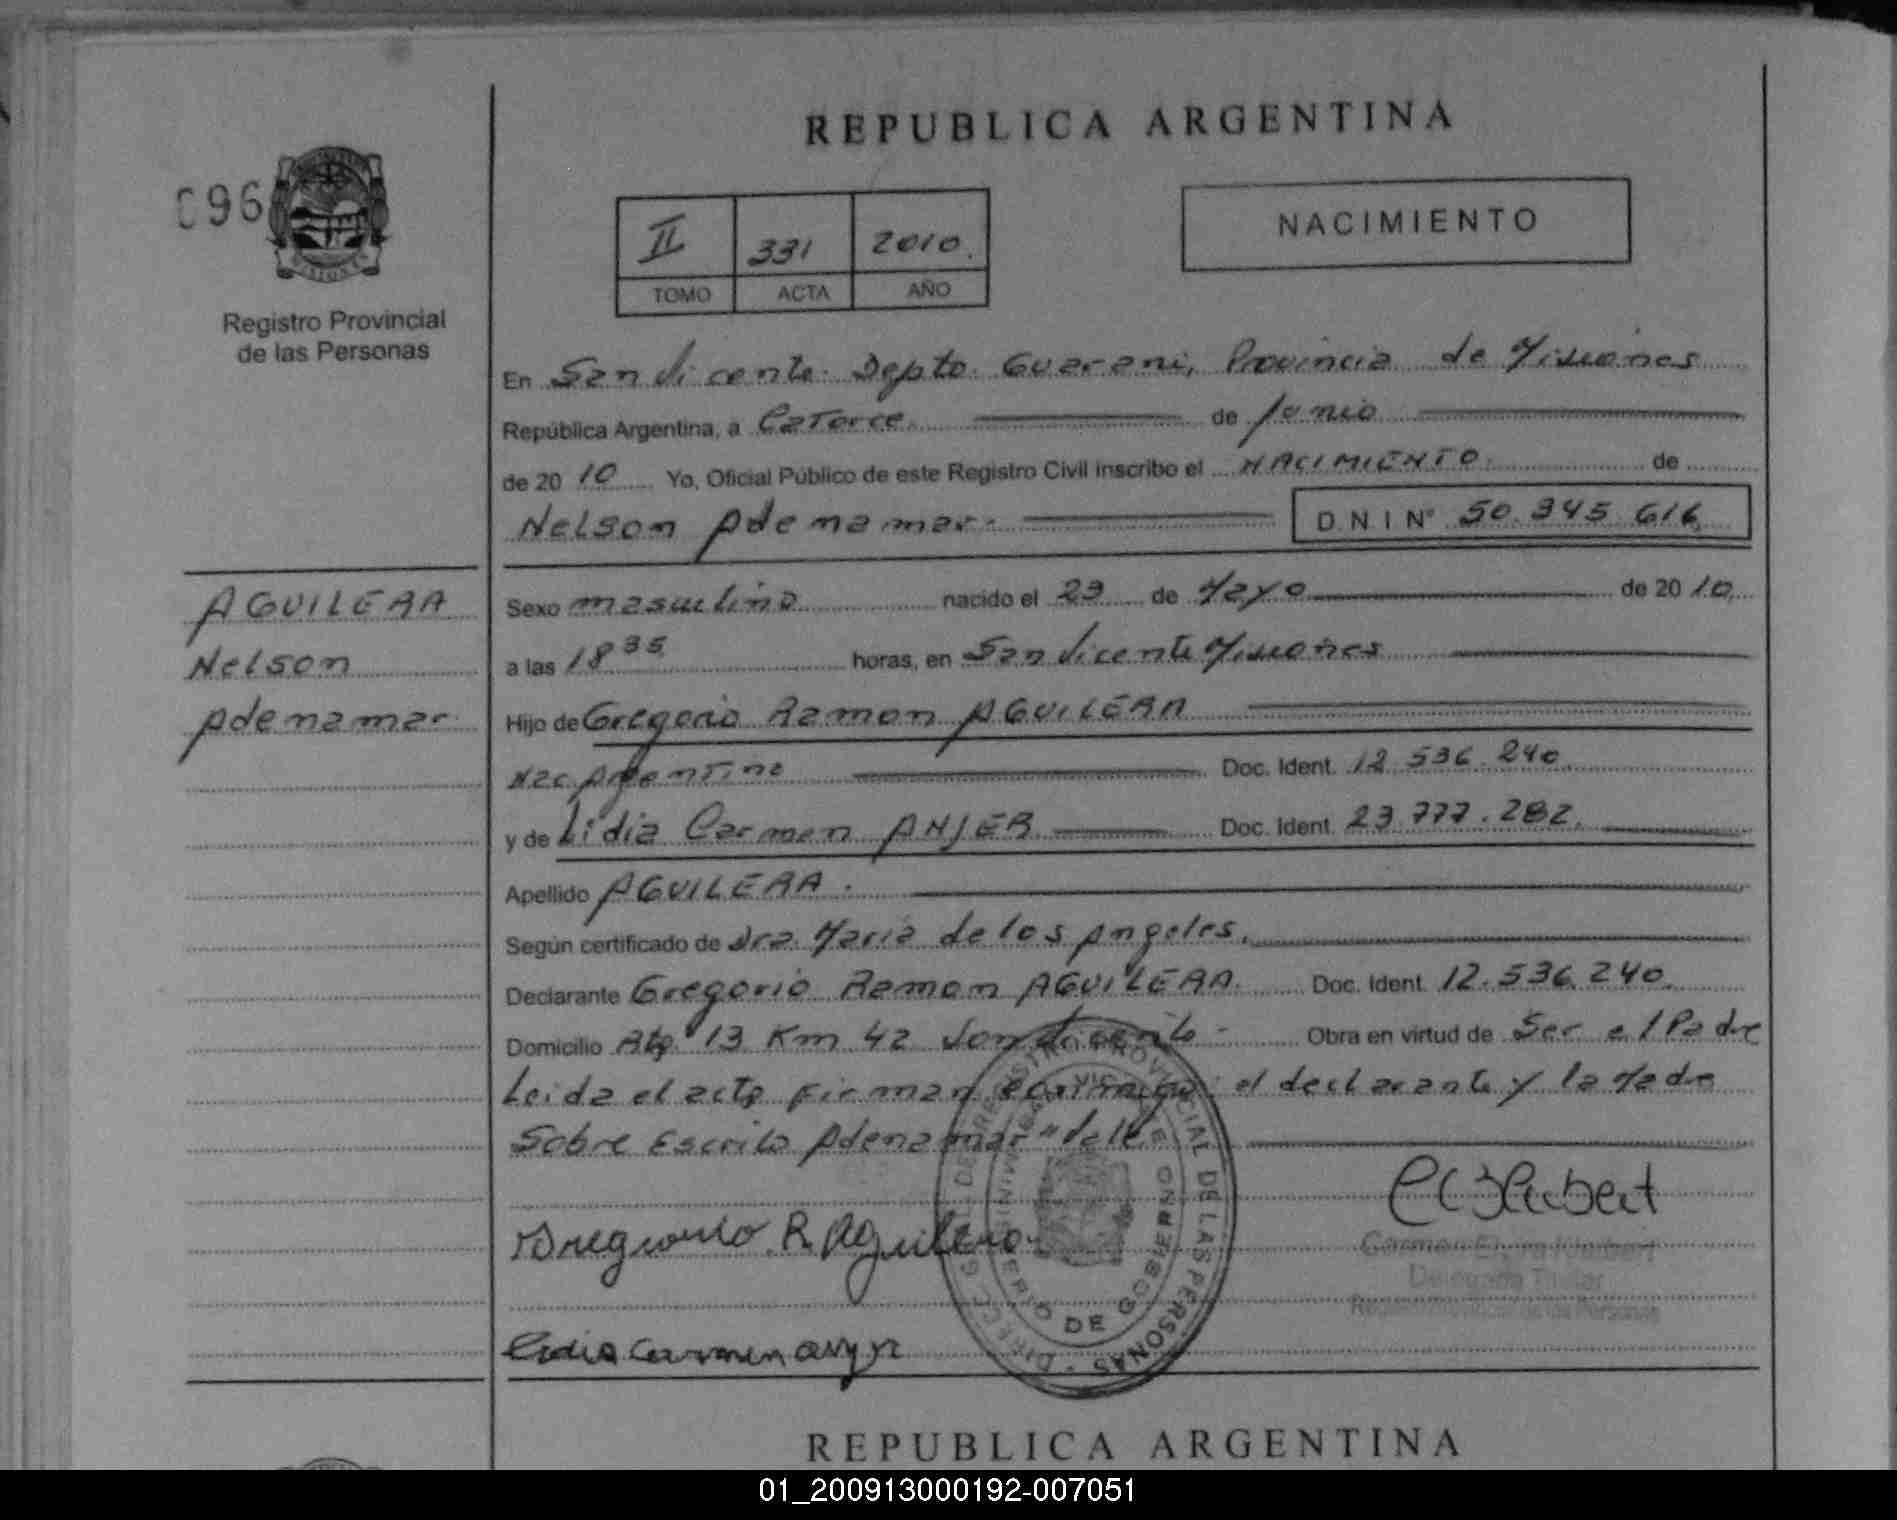 REPUBLICA ARGENTINA
096
MISIONES
Registro Provincial
de las Personas
II 331 2010.
TOMO ACTA AÑO
NACIMIENTO
En San Vicente. Depto. Guarani, Provincia de Misiones
República Argentina, a Catorce. de Junio
de 20 10 Yo, Oficial Público de este Registro Civil inscribo el NACIMIENTO. de
Nelson Adenamar. D.N.I Nº 50.345.616
AGUILERA
Nelson
Adenamar
Sexo masculino nacido el 23 de Mayo de 20 10.
a las 18 35 horas, en San Vicente Misiones
Hijo de Gregorio Ramon AGUILERA
Nac. Argentina Doc. Ident. 12.536.240.
y de Lidia Carmen ANJER Doc. Ident. 23.777.282.
Apellido AGUILERA.
Según certificado de Dra. Maria de los Angeles.
Declarante Gregorio Ramon AGUILERA. Doc. Ident. 12.536.240.
Domicilio 13 Km 42 San Vicente - Obra en virtud de Ser el Padre
Leida el acta firman conmigo: el declarante y la Madre
Sobre Escrito Adenamar "Vale
Gregorio R. Aguilera
Lidia Carmen
DIRECC. GRAL. DE REGISTRO PROVINCIAL DE LAS PERSONAS
MINISTERIO DE GOBIERNO
Carmen
Delegada Titular
Registro Provincial de las Personas
REPUBLICA ARGENTINA
01_200913000192-007051